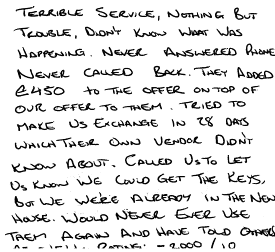 TERRIBLE SERVICE, NOTHING BUT
TROUBLE, DIDNT KNOW WHAT WAS
HAPPENING. NEVER ANSWERED PHONE
NEVER CALLED BACK. THEY ADDED
£450 TO THE OFFER ON TOP OF
OUR OFFER TO THEM. TRIED TO
MAKE US EXCHANGE IN 28 DAYS
WHICH THEIR OWN VENDOR DIDN'T
KNOW ABOUT. CALLED US TO LET
US KNOW WE COULD GET THE KEYS,
BUT WE WERE ALREADY IN THE NEW
HOUSE. WOULD NEVER EVER USE
THEM AGAIN AND HAVE TOLD OTHERS
RATING: -2000/10